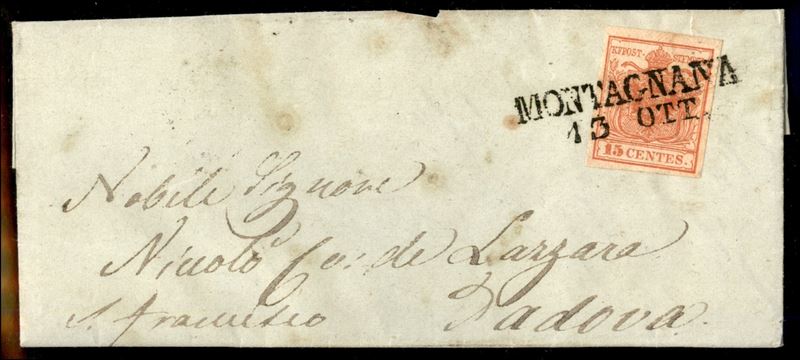 KKPOST-STEMPEL
MONTAGNANA
13 OTT.
15 CENTES.
Nobile Signore
Niccolò Co: de Lazzara
S. Francesco Padova.